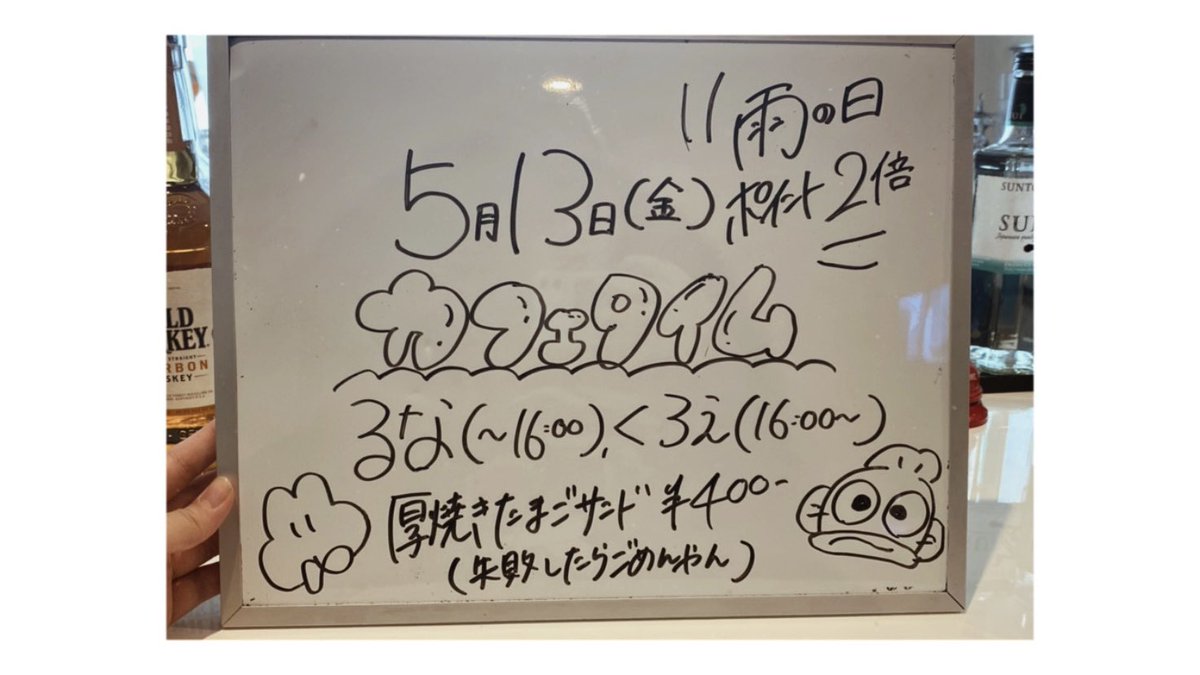 雨の日
5月13日(金) ポイント2倍
カフェタイム
るな(〜16:00)、くろえ(16:00〜)
厚焼きたまごサンド ¥400-
(失敗したらごめんやん)
LD
KEY
STRAIGHT
RBON
SKEY
SUNTO
SU